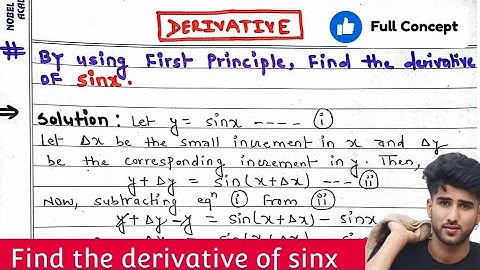 NOBEL
ACAD
DERIVATIVE
Full Concept
# By using First Principle, Find the derivative
of sinx.
→ Solution : Let y = sinx ---- (i)
Let Δx be the small increment in x and Δy
be the corresponding increment in y. Then,
y+Δy = sin(x+Δx) --- (ii)
Now, subtracting eqⁿ (i) from (ii)
y+Δy-y = sin(x+Δx) - sinx
Find the derivative of sinx